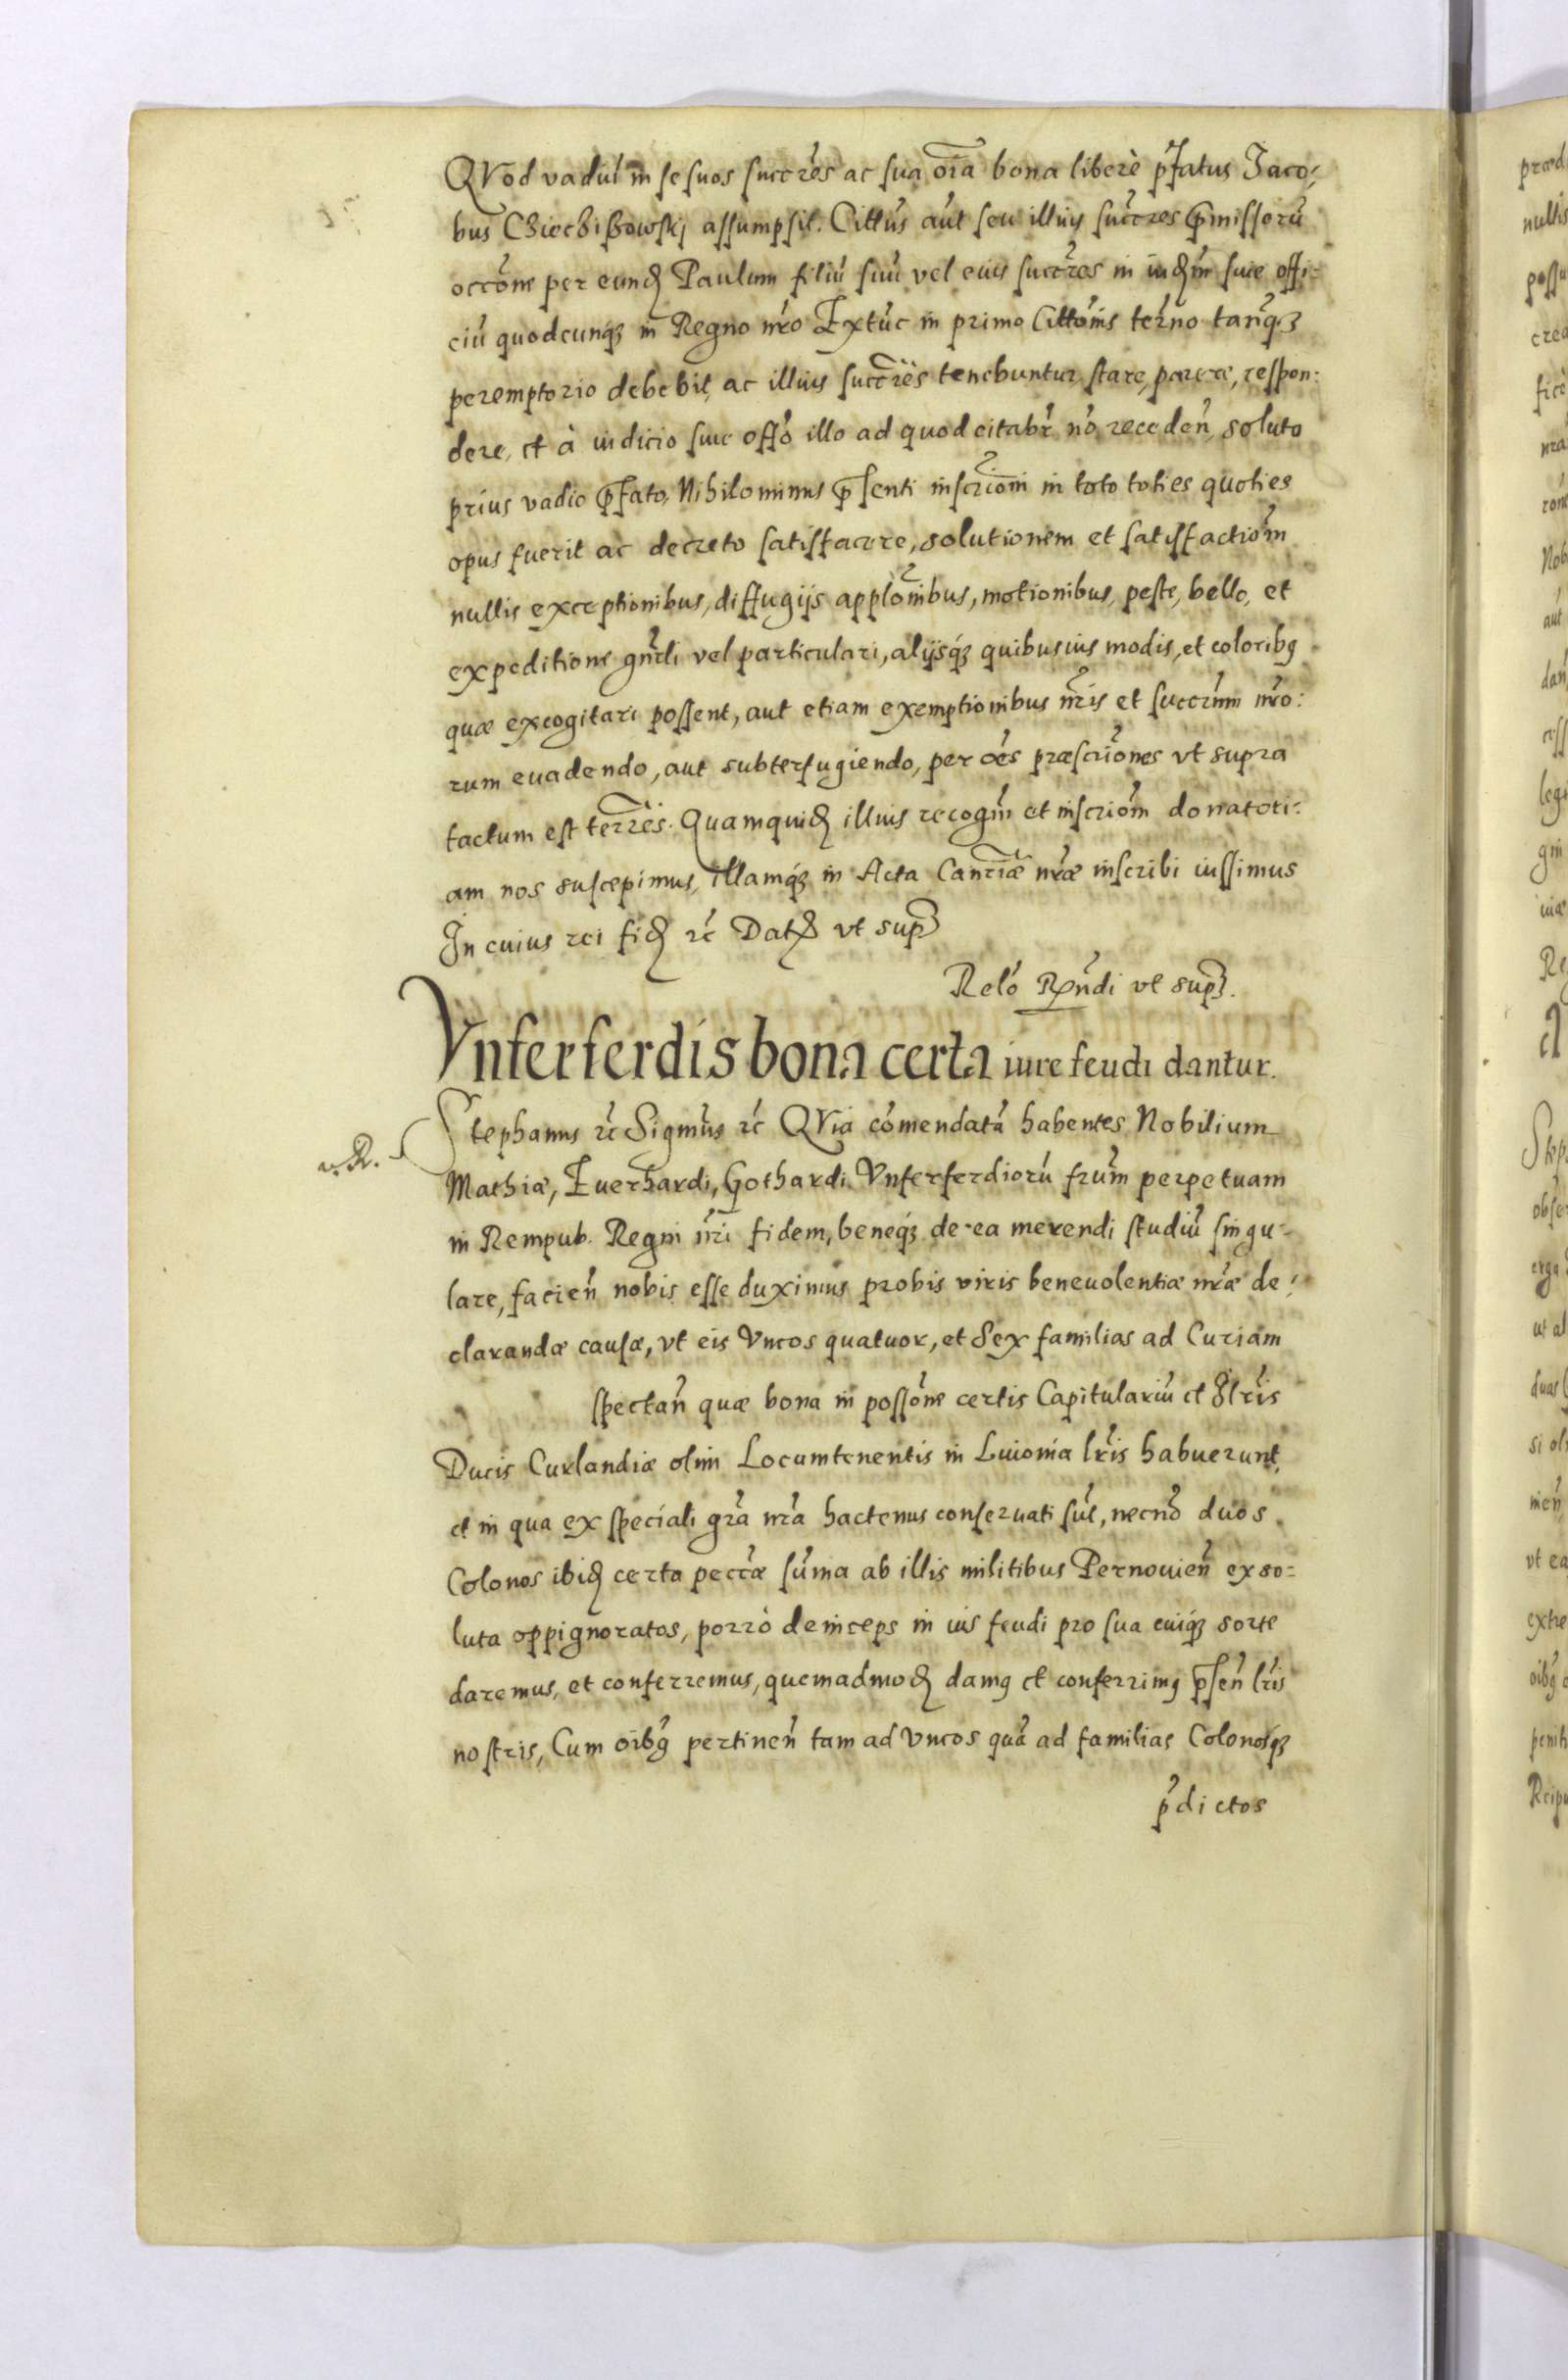 QVod vadiũ in se suos succr̃es ac sua oĩa bona liberè p̃fatus Jaco:
bus Chiechißowskj assumpsit. Cittũs aũt seu illius succr̃es p̃missorũ
occõne per eund̃ Paulum filiũ suũ vel eius succr̃es in iud̃m siue offi:
ciũ quodcunq̃ in Regno nr̃o Extũc in primo Cittõnis ter̃no tanq̃
peremptorio debebit, ac illius succr̃es tenebuntur stare, parere, respon:
dere, et à iudicio siue offõ illo ad quod citabr̃ nõ receden̄, soluto
prius vadio p̃fato, Nihilominus p̃senti inscriõni in toto toties quoties
opus fuerit ac decreto satisfacere, solutionem et satisfactiõm
nullis exceptionibus, diffugijs applõnibus, motionibus, peste, bello, et
expeditione gnr̃li vel particulari, alijsq́; quibusuis modis, et coloribꝯ
quæ excogitari possent, aut etiam exemptionibus nr̃is et succrũm nr̃o:
rum euadendo, aut subterfugiendo, per oẽs præscriõnes vt supra
tactum est terr̃es. Quamquid̃ illius recogm̃ et inscriõm donatori:
am nos suscepimus, illamq́; in Acta Canc̃riæ nr̃æ inscribi iussimus
In cuius rei fid̃ rc̃ Dat̃ vt sup̃
Relõ Rp̃ndi vt sup̃.
Vnferferdis bona certa iure feudi dantur.
Stephanus rc̃ Sigm̃us rc̃ QVia cõmendatã habentes Nobilium
Mathiæ, Euerhardi, Gothardi Vnferferdiorũ frũm perpetuam
in Rempub. Regni nr̃i fidem, beneq́; de ea merendi studiũ singu:
lare, facien̄ nobis esse duximus probis viris beneuolentiæ nr̃æ de:
clarandæ causæ, vt eis Vncos quatuor, et Sex familias ad Curiam
spectan̄ quæ bona in possõne certis Capitulariũ et Ill̃ris
Ducis Curlandiæ olim Locumtenentis in Liuonia lr̃is habuerunt,
et in qua ex speciali gr̃a nr̃a hactenus conseruati sũt, necnõ duos
Colonos ibid̃ certa pecc̃æ sũma ab illis militibus Pernouien̄ exso:
luta oppignoratos, porrò deinceps in ius feudi pro sua cuiq́; sorte
daremus, et conferremus, quemadmod̃ damꝯ et conferrimꝯ p̃sen̄ lr̃is
nostris, Cum oĩbꝯ pertinen̄ tam ad Vncos quã ad familias Colonosq́;
p̃dictos